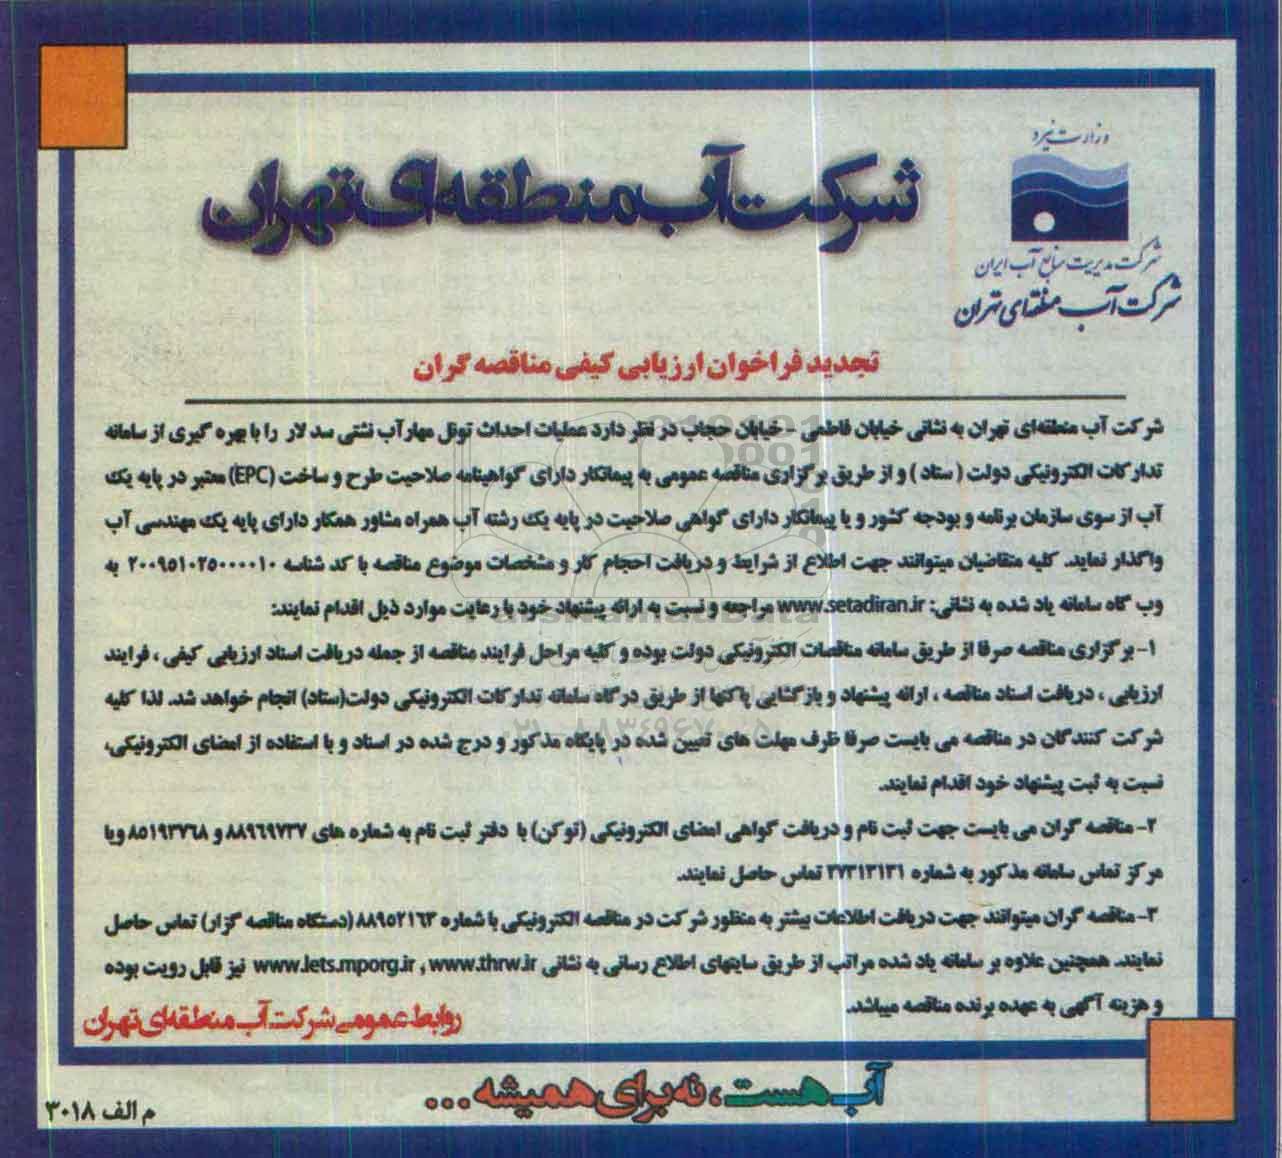 وزارت نیرو
شرکت مدیریت منابع آب ایران
شرکت آب منطقه‌ای تهران
شرکت آب منطقه‌ای تهران
تجدید فراخوان ارزیابی کیفی مناقصه گران
شرکت آب منطقه‌ای تهران به نشانی خیابان فاطمی - خیابان حجاب در نظر دارد عملیات احداث تونل مهارآب نشتی سد لار را با بهره گیری از سامانه
تدارکات الکترونیکی دولت ( ستاد ) و از طریق برگزاری مناقصه عمومی به پیمانکار دارای گواهینامه صلاحیت طرح و ساخت (EPC) معتبر در پایه یک
آب از سوی سازمان برنامه و بودجه کشور و یا پیمانکار دارای گواهی صلاحیت در پایه یک رشته آب همراه مشاور همکار دارای پایه یک مهندسی آب
واگذار نماید. کلیه متقاضیان میتوانند جهت اطلاع از شرایط و دریافت احجام کار و مشخصات موضوع مناقصه با کد شناسه ۲۰۰۹۵۱۰۲۵۰۰۰۰۱۰ به
وب گاه سامانه یاد شده به نشانی: www.setadiran.ir مراجعه و نسبت به ارائه پیشنهاد خود با رعایت موارد ذیل اقدام نمایند:
۱- برگزاری مناقصه صرفا از طریق سامانه مناقصات الکترونیکی دولت بوده و کلیه مراحل فرایند مناقصه از جمله دریافت اسناد ارزیابی کیفی ، فرایند
ارزیابی ، دریافت اسناد مناقصه ، ارائه پیشنهاد و بازگشایی پاکتها از طریق درگاه سامانه تدارکات الکترونیکی دولت(ستاد) انجام خواهد شد. لذا کلیه
شرکت کنندگان در مناقصه می بایست صرفا ظرف مهلت های تعیین شده در پایگاه مذکور و درج شده در اسناد و با استفاده از امضای الکترونیکی،
نسبت به ثبت پیشنهاد خود اقدام نمایند.
۲- مناقصه گران می بایست جهت ثبت نام و دریافت گواهی امضای الکترونیکی (توکن) با دفتر ثبت نام به شماره های ۸۸۹۶۹۷۳۷ و ۸۵۱۹۳۷۶۸ ویا
مرکز تماس سامانه مذکور به شماره ۲۷۳۱۳۱۳۱ تماس حاصل نمایند.
۳- مناقصه گران میتوانند جهت دریافت اطلاعات بیشتر به منظور شرکت در مناقصه الکترونیکی با شماره ۸۸۹۵۲۱۶۳ (دستگاه مناقصه گزار) تماس حاصل
نمایند. همچنین علاوه بر سامانه یاد شده مراتب از طریق سایتهای اطلاع رسانی به نشانی www.thrw.ir و www.Iets.mporg.ir نیز قابل رویت بوده
و هزینه آگهی به عهده برنده مناقصه میباشد.
روابط عمومی شرکت آب منطقه‌ای تهران
آب هست، نه برای همیشه ...
م الف ۳۰۱۸